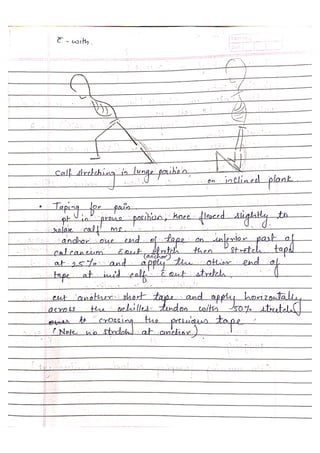 c̄ - with.
Calf stretching in lunge position.
on inclined plank.
• Taping for pain
pt in prone position, knee flexed slightly to
relax calf ms.
anchor one end of tape on inferior part of
calcaneum c̄out stretch then stretch tape
at 25% and apply the other end of
(anchor)
tape at mid calf c̄out stretch.
cut another short tape and apply horizontally
across the achilles tendon with 50% stretch
crossing the previous tape
(Note no stretch at anchor)